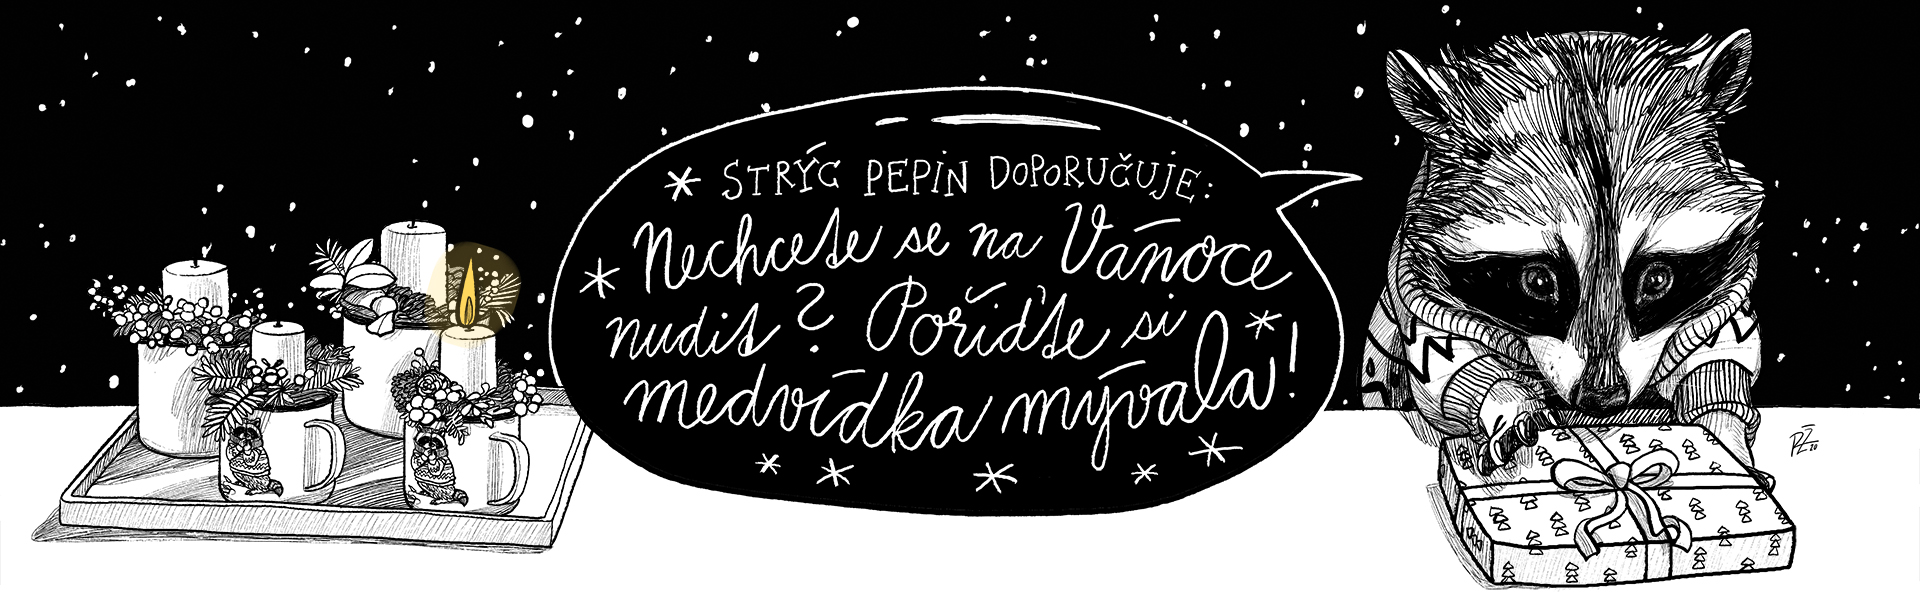 STRÝC PEPIN DOPORUČUJE:
Nechcete se na Vánoce
nudit? Pořiďte si
medvídka mývala!
PŽ 20